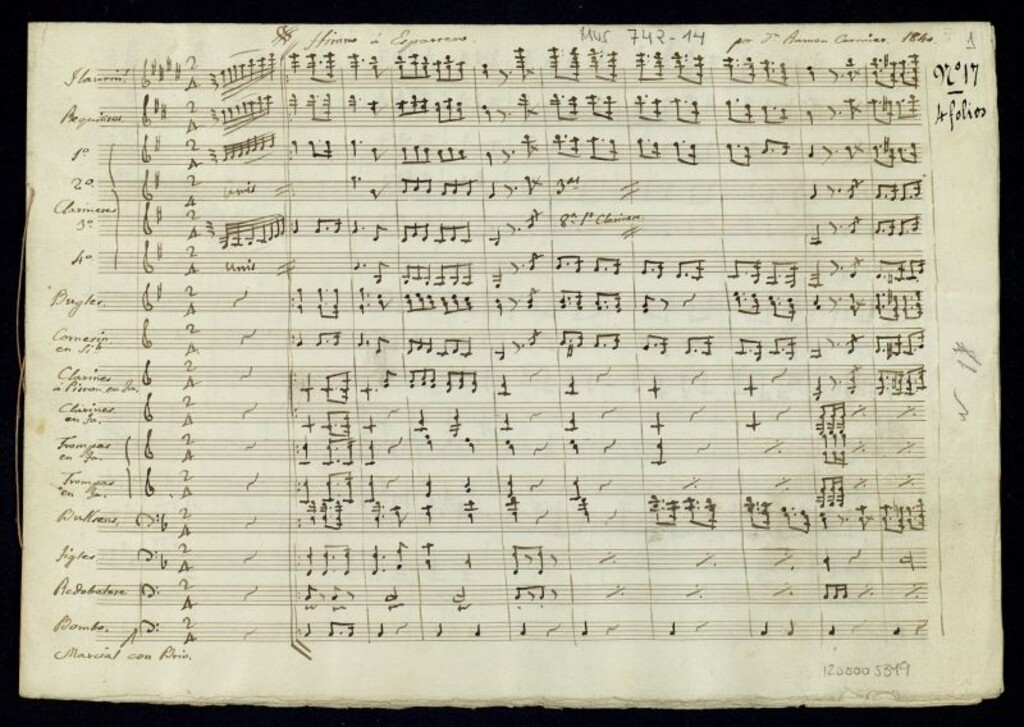 Himno à Espartero. MUS 742-14 por Dn Ramon Carnicer. 1840. 1
Nº 17
4 folios
Flautin
Requintos
1º
2º unis 3as
Clarinetes
3º 8ª 1º Clarinete
4º unis
Bugles
Cornetin
en Sib
Clarines
à Piston en Fa.
Clarines
en Fa.
Trompas
en Fa.
Trompas
en Fa.
Figles
Redoblante
Bombo.
Marcial con Brio.
1200005349